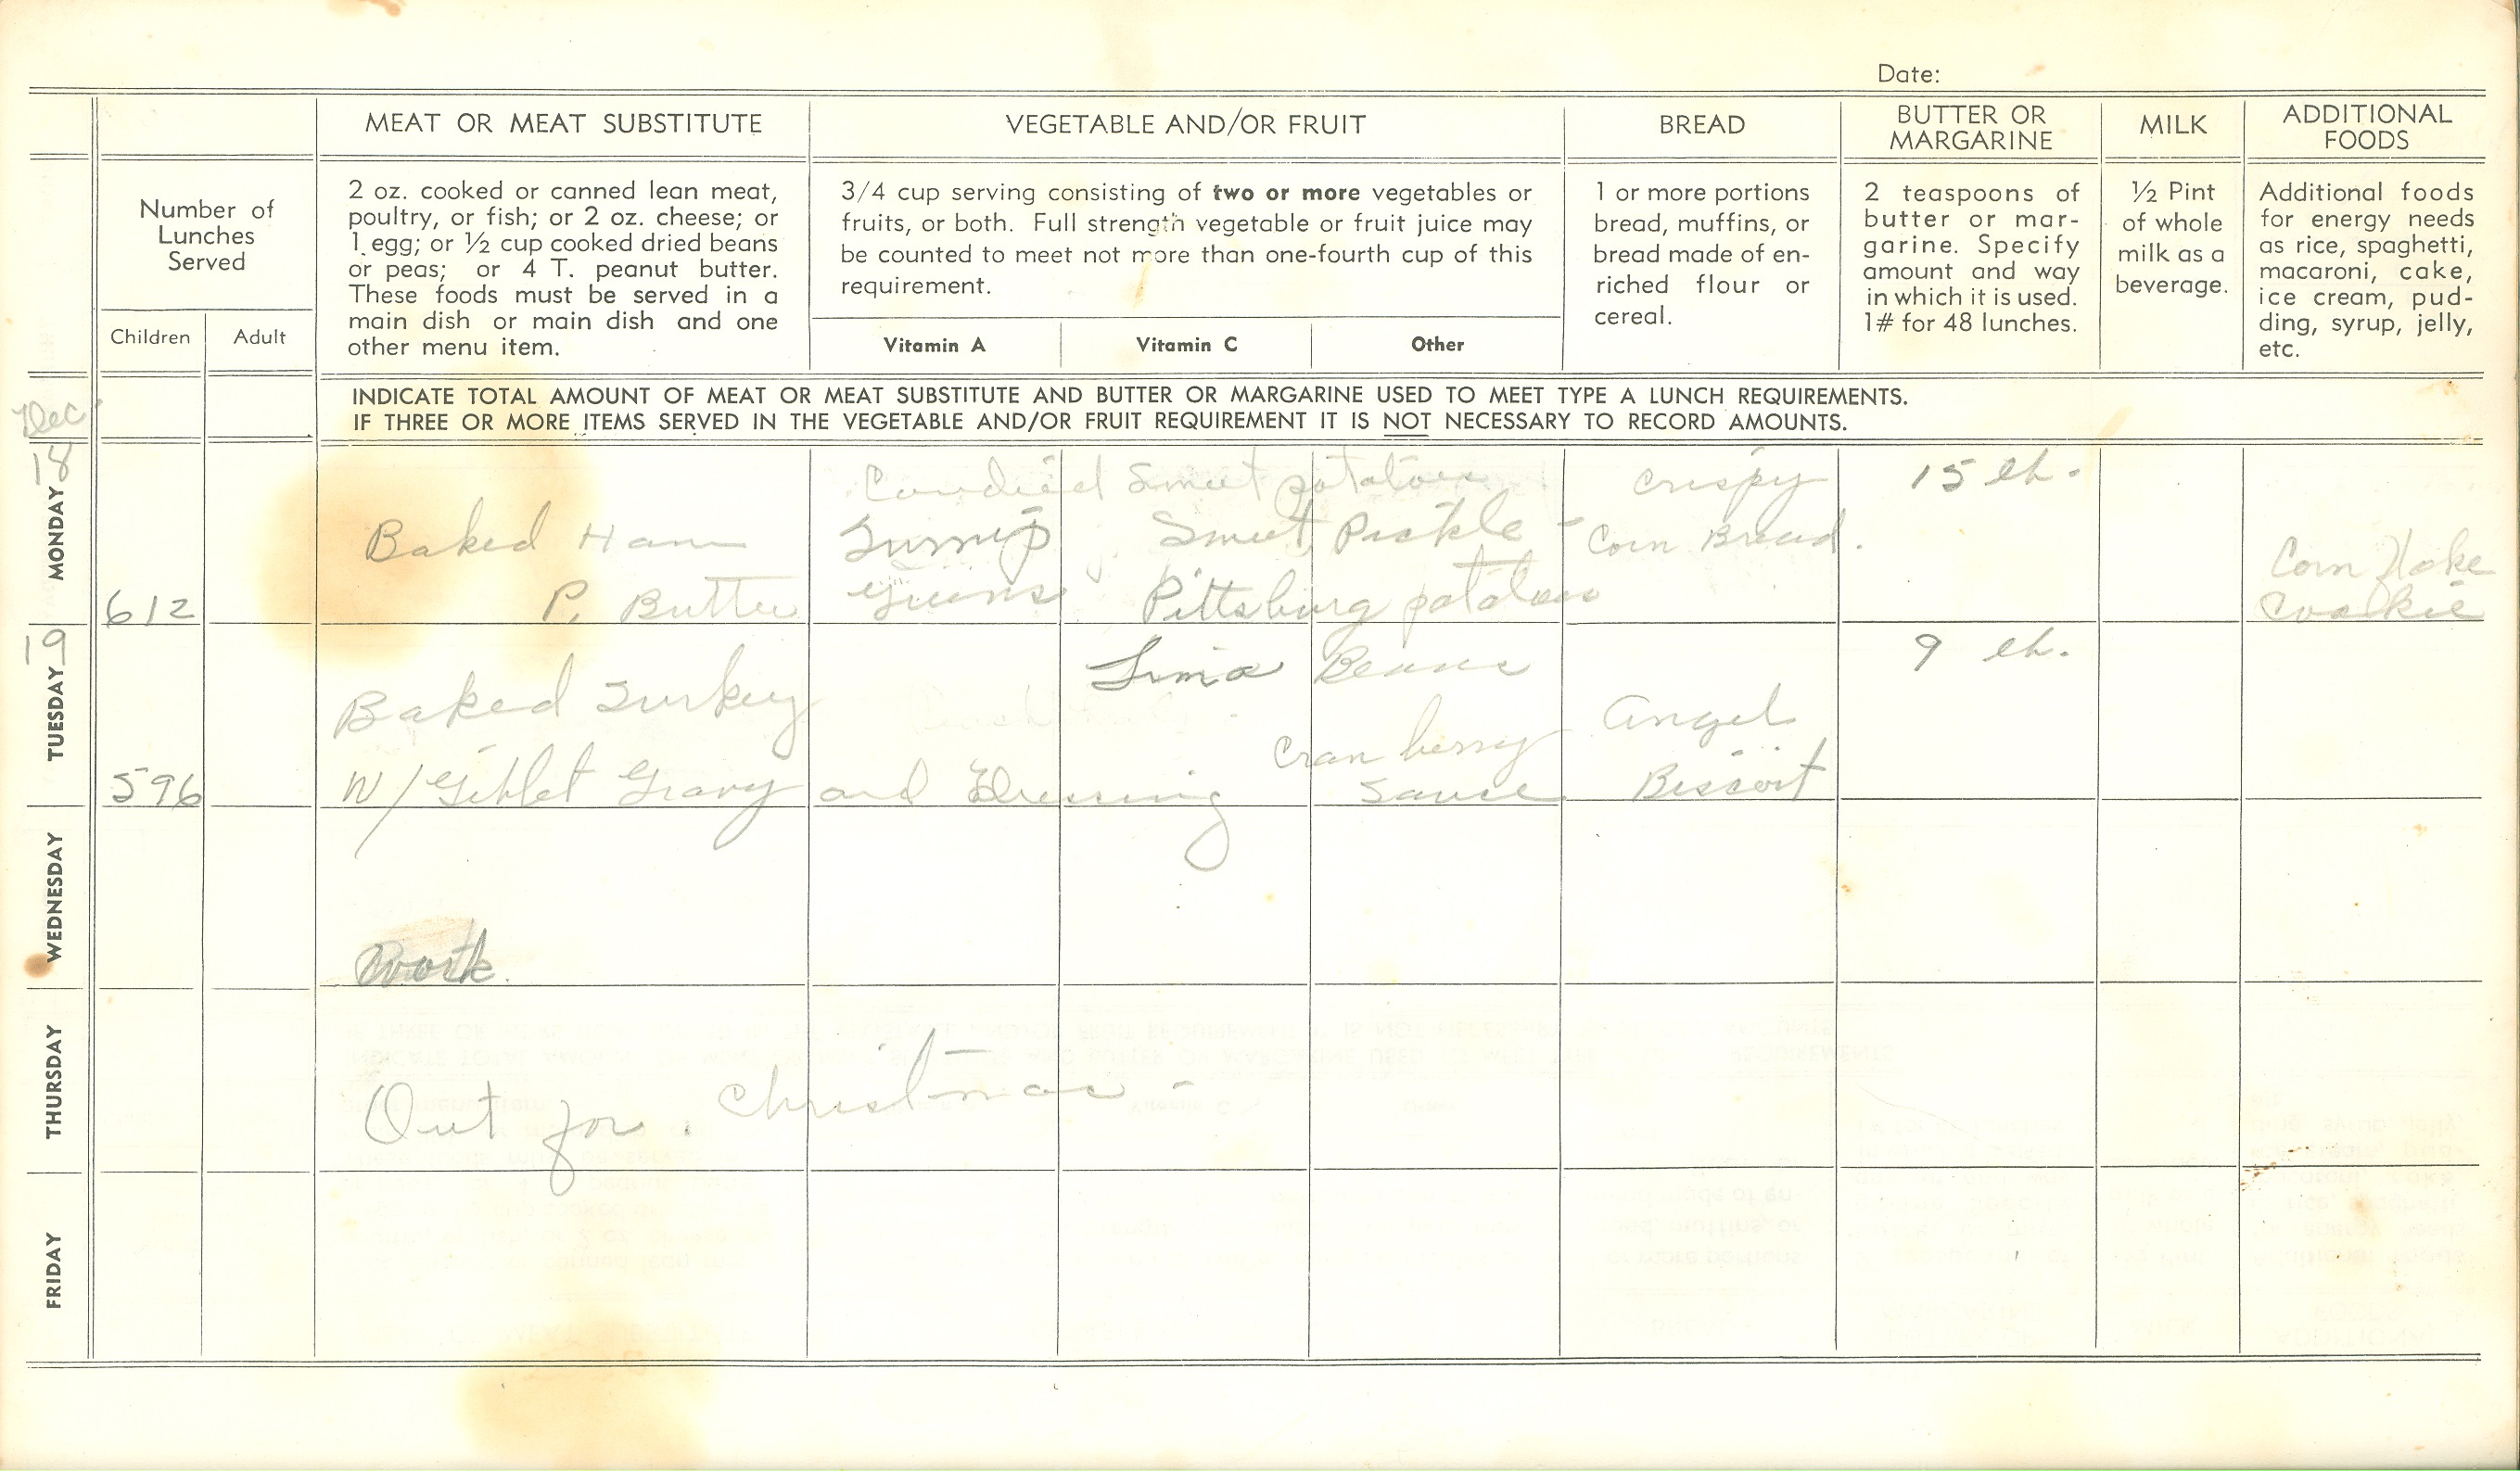 Date:
MEAT OR MEAT SUBSTITUTE
VEGETABLE AND/OR FRUIT
BREAD
BUTTER OR
MARGARINE
MILK
ADDITIONAL
FOODS
Number of
Lunches
Served
Children
Adult
2 oz. cooked or canned lean meat,
poultry, or fish; or 2 oz. cheese; or
1 egg; or ½ cup cooked dried beans
or peas; or 4 T. peanut butter.
These foods must be served in a
main dish or main dish and one
other menu item.
3/4 cup serving consisting of two or more vegetables or
fruits, or both. Full strength vegetable or fruit juice may
be counted to meet not more than one-fourth cup of this
requirement.
Vitamin A
Vitamin C
Other
1 or more portions
bread, muffins, or
bread made of en-
riched flour or
cereal.
2 teaspoons of
butter or mar-
garine. Specify
amount and way
in which it is used.
1# for 48 lunches.
½ Pint
of whole
milk as a
beverage.
Additional foods
for energy needs
as rice, spaghetti,
macaroni, cake,
ice cream, pud-
ding, syrup, jelly,
etc.
INDICATE TOTAL AMOUNT OF MEAT OR MEAT SUBSTITUTE AND BUTTER OR MARGARINE USED TO MEET TYPE A LUNCH REQUIREMENTS.
IF THREE OR MORE ITEMS SERVED IN THE VEGETABLE AND/OR FRUIT REQUIREMENT IT IS NOT NECESSARY TO RECORD AMOUNTS.
Dec
18
MONDAY
612
Baked Ham
P. Butter
Candied Sweet potatoes
Turnip
Greens
Sweet Pickle -
Pittsburg potatoes
Crispy
Corn Bread.
15 lb.
Corn Flake
Cookie
19
TUESDAY
596
Baked Turkey
W/ Giblet Gravy and Dressing
Lima Beans
Cranberry
Sauce
Angel
Biscoit
9 lb.
WEDNESDAY
Work.
THURSDAY
Out for Christmas -
FRIDAY